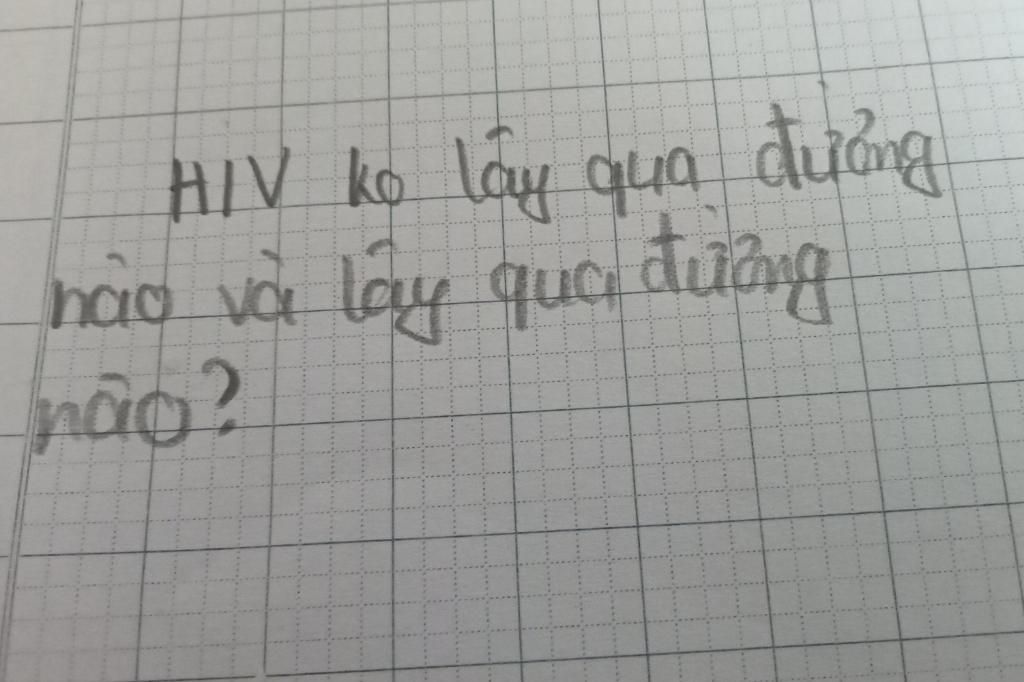 HIV ko lây qua đường
nào và lây qua đường
nào?